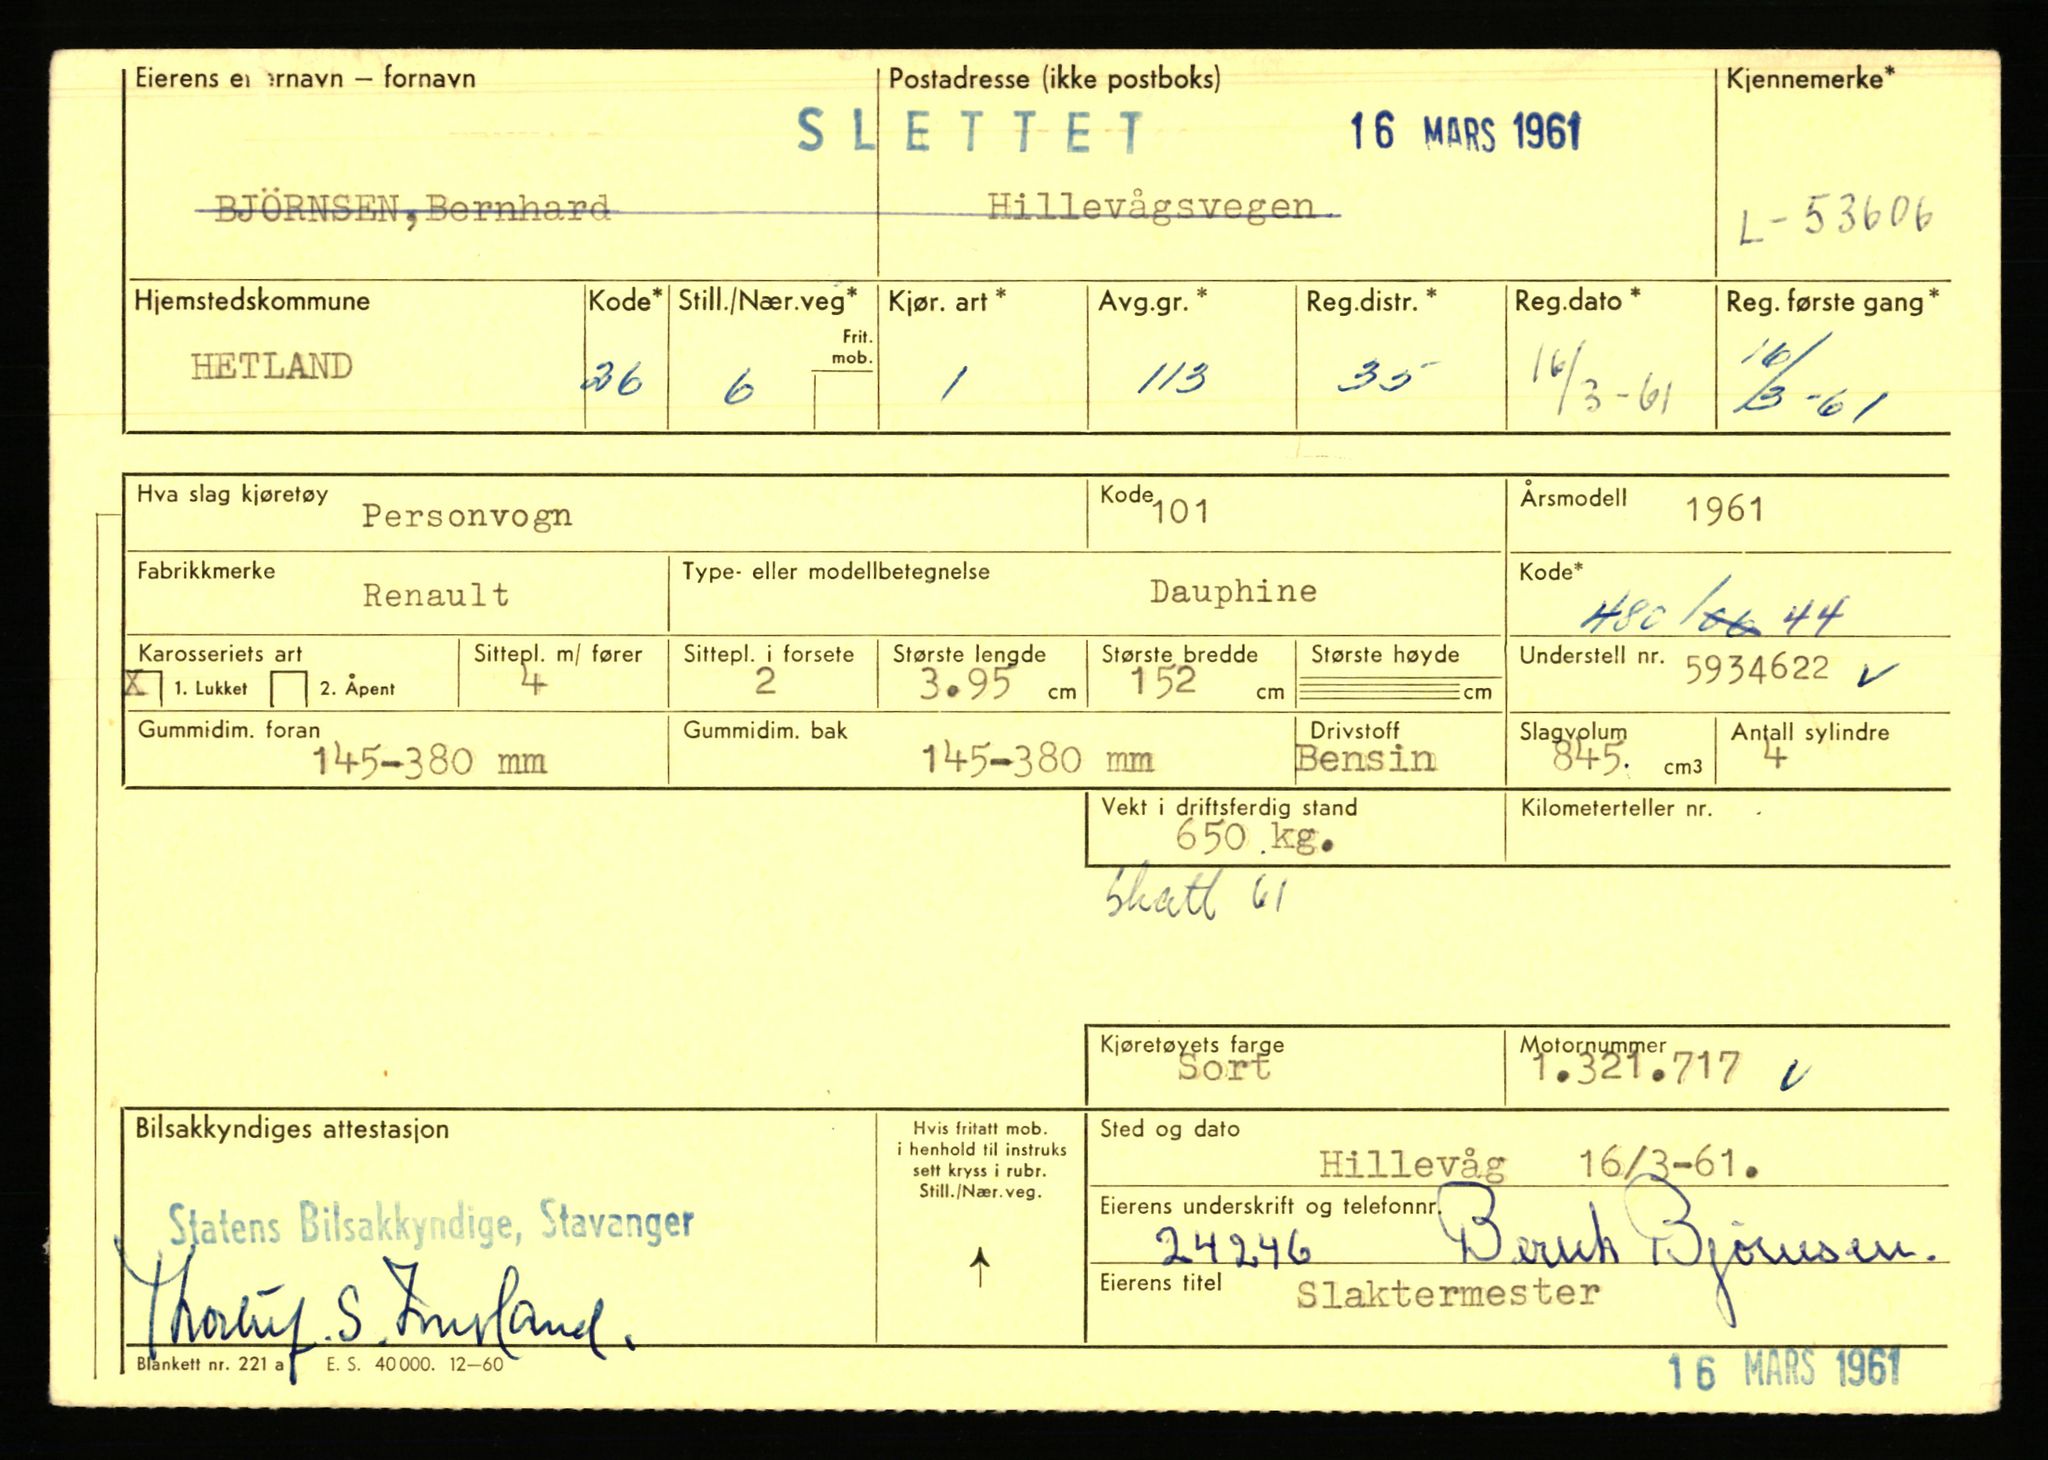 Eierens e ernavn – fornavn Postadresse (ikke postboks) Kjennemerke*
SLETTET 16 MARS 1961
BJÖRNSEN, Bernhard Hillevågsvegen. L-53606
Hjemstedskommune Kode* Still./Nær.veg* Kjør. art * Avg.gr. * Reg.distr. * Reg.dato * Reg. første gang *
Frit. mob.
HETLAND 26 6 1 113 35 16/3-61 16/3-61
Hva slag kjøretøy Personvogn Kode 101 Årsmodell 1961
Fabrikkmerke Renault Type- eller modellbetegnelse Dauphine Kode* 480/66 44
Karosseriets art Sittepl. m/ fører Sittepl. i forsete Største lengde Største bredde Største høyde Understell nr. 5934622
X 1. Lukket 2. Åpent 4 2 3.95 cm 152 cm cm
Gummidim. foran Gummidim. bak Drivstoff Slagvolum Antall sylindre
145-380 mm 145-380 mm Bensin 845. cm3 4
Vekt i driftsferdig stand Kilometerteller nr.
650 kg.
Skatt 61
Kjøretøyets farge Motornummer
Sort 1.321.717
Bilsakkyndiges attestasjon Hvis fritatt mob. Sted og dato
i henhold til instruks
sett kryss i rubr. Hillevåg 16/3-61.
Still./Nær.veg.
Statens Bilsakkyndige, Stavanger Eierens underskrift og telefonnr.
24246 Bernh Bjørnsen.
Eierens titel Slaktermester
Blankett nr. 221 a E. S. 40000. 12–60
16 MARS 1961